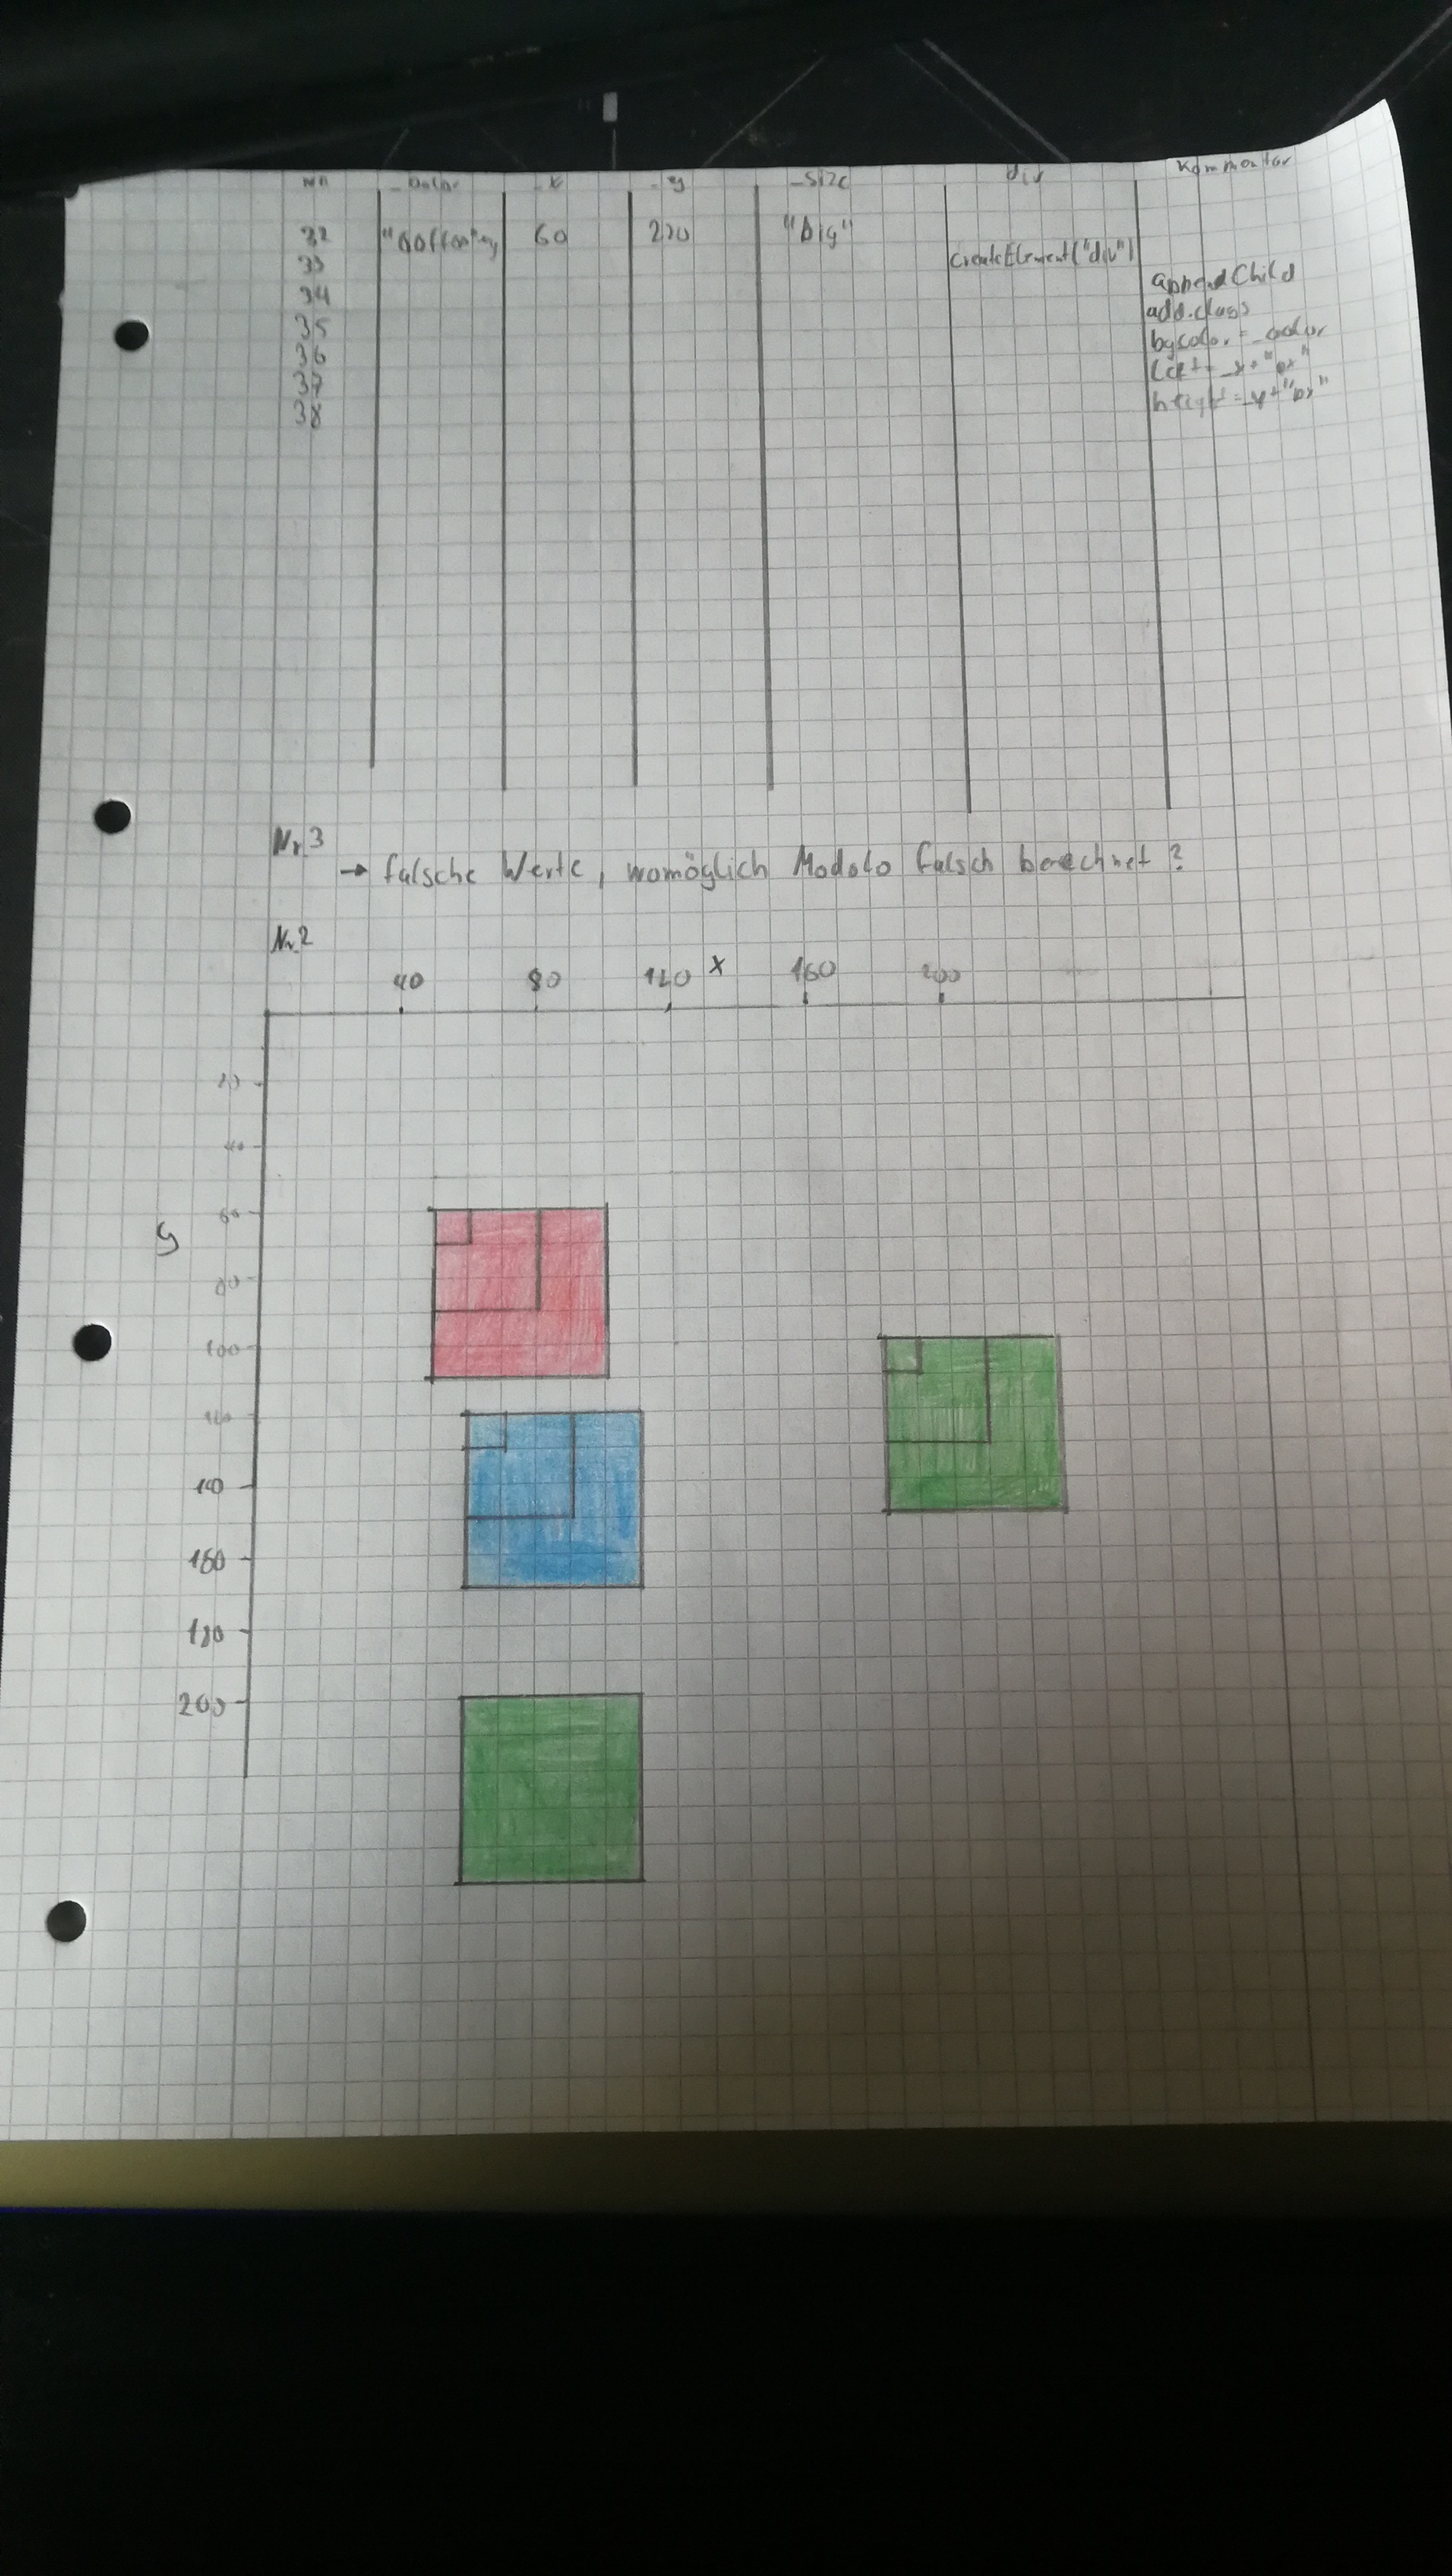 _color _x _y _size div Kommentar
32 60 220 "big"
33 createElement("div")
34 appendChild
35 add.class
36 bgcolor = _color
37 left = _x + "px"
38 height = _y + "px"
Nr.3
→ falsche Werte, womöglich Modolo falsch berechnet?
Nr.2
40 80 120 x 160 200
20
40
60
y
80
100
120
140
160
180
200